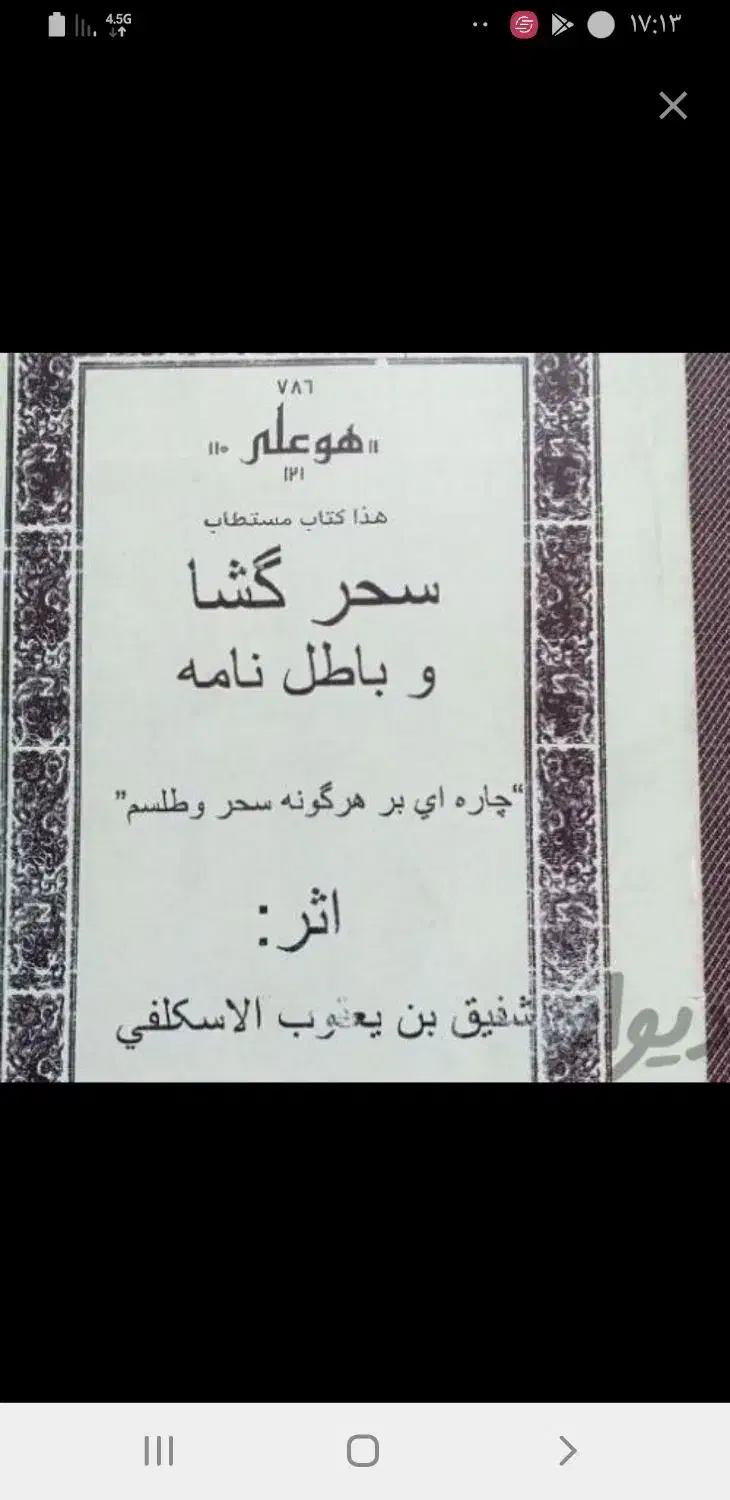 4.5G
۱۷:۱۳
٧٨٦
١١ هو علی ١١٠
١٢١
هذا کتاب مستطاب
سحر گشا
و باطل نامه
“چاره اي بر هرگونه سحر وطلسم”
اثر :
شفیق بن یعقوب الاسکلفي